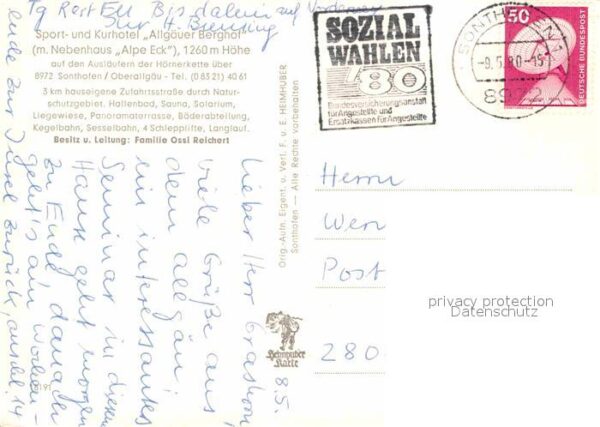 Sport- und Kurhotel "Allgäuer Berghof"
(m. Nebenhaus "Alpe Eck"), 1260 m Höhe
auf den Ausläufern der Hörnerkette über
8972 Sonthofen / Oberallgäu - Tel. (0 83 21) 40 61
3 km hauseigene Zufahrtsstraße durch Natur-
schutzgebiet. Hallenbad, Sauna, Solarium,
Liegewiese, Panoramaterrasse, Bäderabteilung,
Kegelbahn, Sesselbahn, 4 Schlepplifte, Langlauf.
Besitz u. Leitung: Familie Ossi Reichert
Lieber Herr
viele Grüße aus
dem Allgäu,
ein interessantes
Seminar in diesem
Hause geht morgen
zu Ende, danach
geht's am Wochen-
ende zur Insel zurück,
8.5.
Orig.-Aufn. Eigent. u. Verl. F. u. E. HEIMHUBER
Sonthofen — Alle Rechte vorbehalten
Heimhuber
Karte
SOZIAL
WAHLEN
'80
Bundesversicherungsanstalt
für Angestellte und
Ersatzkassen für Angestellte
SONTHOFEN 1
-9.5.80-15
8972
50
DEUTSCHE BUNDESPOST
Herrn
Wer
Post
280
privacy protection
Datenschutz